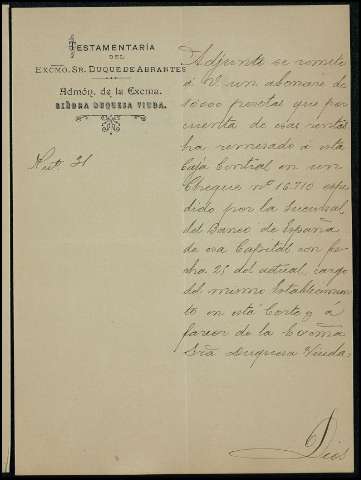 TESTAMENTARÍA
DEL
EXCMO. SR. DUQUE DE ABRANTES
Admón. de la Excma.
SEÑORA DUQUESA VIUDA.
Adjunto se remite
á V. un abonaré de
10000 pesetas que por
cuenta de esas rentas
ha remesado á esta
Caja Central en un
Cheque nº 16.710 espe
dido por la Sucursal
del Banco de España
de esa Capital con fe-
cha 21 del actual, cargo
del mismo Establecimien
to en esta Corte y á
favor de la Excma
Sra Duquesa Viuda.
Dios